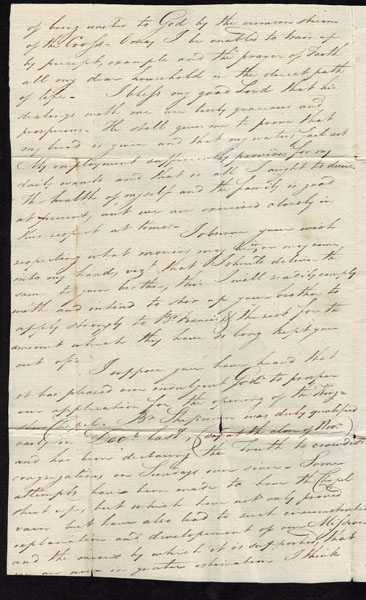 of being united to God by the
of the Cross. may I be enabled to train up
by precept, example and the prayer of Faith
all my dear household in the direct path
of life. I bless my good Lord that his
dealings with me are truly gracious and
prosperous. He still gives me to prove that
my bread is given and that my waters fail not
My employment sufficiently provides for my
daily wants and that is all I ought to desire.
The health of myself and the family is good
at present, but we are exercised closely in
this respect at times. I observe your wish
respecting what monies may come
into my hands, viz that I should deliver the
same to your brother, this I will readily comply
with and intend to stir up your brother to
apply strongly to Br Francis & the rest for the
amount which they have so long kept you
out of. I suppose you have heard that
it has pleased our indulgent God to prosper
our application for the opening of the
Chapel. Br was duly qualified
early in Decr last, (say at the close of Novr)
and has been declaring the Truth to crowded
congregations on ever since. Some
attempts have been made to have the Chapel
shut up, but which have not only proved
vain but have also lead to such
explanation and development of our Mission
and the means by which it is supported, that
we are now in greater estimation I think